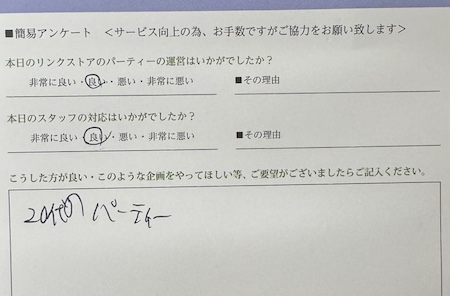 ■簡易アンケート <サービス向上の為、お手数ですがご協力をお願い致します>
本日のリンクストアのパーティーの運営はいかがでしたか？
非常に良い・良い・悪い・非常に悪い ■その理由
本日のスタッフの対応はいかがでしたか？
非常に良い・良い・悪い・非常に悪い ■その理由
こうした方が良い・このような企画をやってほしい等、ご要望がございましたらご記入ください。
20代の パーティー